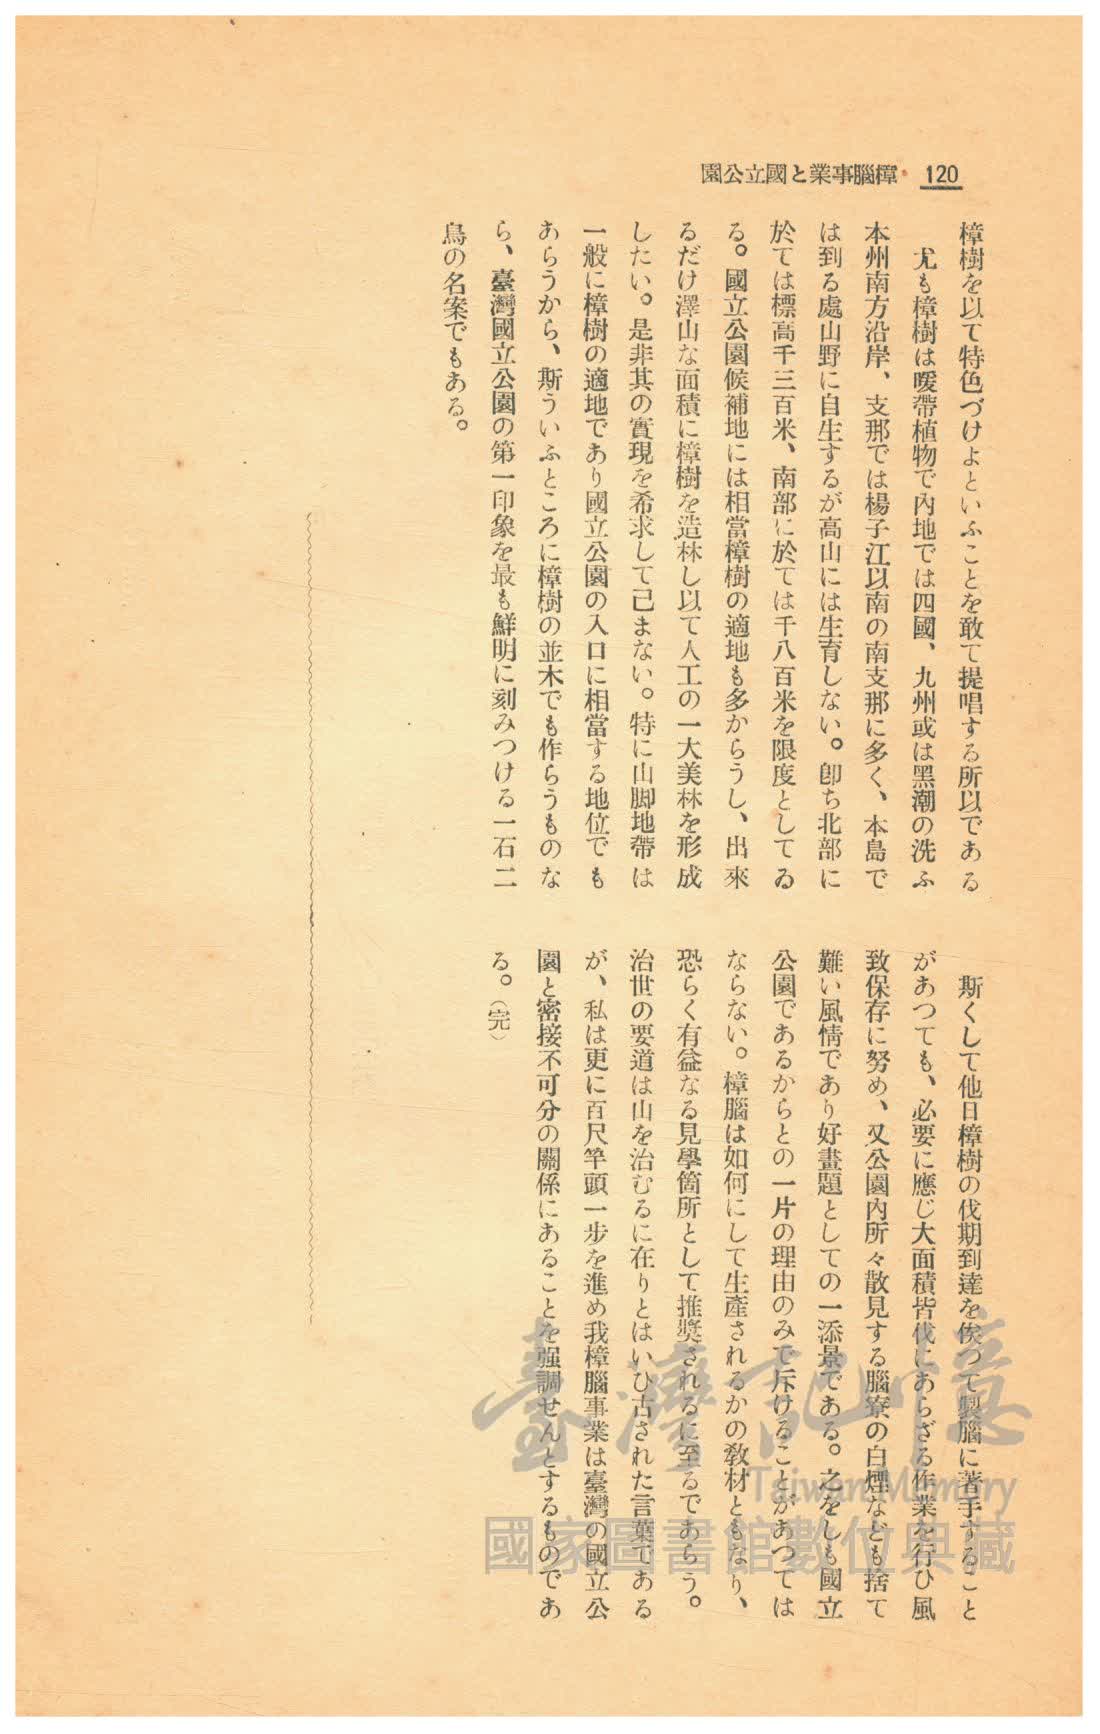 120 樟腦事業と國立公園
樟樹を以て特色づけよといふことを敢て提唱する所以である
尤も樟樹は暖帶植物で內地では四國、九州或は黑潮の洗ふ
本州南方沿岸、支那では楊子江以南の南支那に多く、本島で
は到る處山野に自生するが高山には生育しない。卽ち北部に
於ては標高千三百米、南部に於ては千八百米を限度としてゐ
る。國立公園候補地には相當樟樹の適地も多からうし、出來
るだけ澤山な面積に樟樹を造林し以て人工の一大美林を形成
したい。是非其の實現を希求して已まない。特に山脚地帶は
一般に樟樹の適地であり國立公園の入口に相當する地位でも
あらうから、斯ういふところに樟樹の並木でも作らうものな
ら、臺灣國立公園の第一印象を最も鮮明に刻みつける一石二
鳥の名案でもある。
斯くして他日樟樹の伐期到達を俟つて製腦に著手すること
があつても、必要に應じ大面積皆伐にあらざる作業を行ひ風
致保存に努め、又公園內所々散見する腦寮の白煙なども捨て
難い風情であり好畫題としての一添景である。之をしも國立
公園であるからとの一片の理由のみで斥けることがあつては
ならない。樟腦は如何にして生產されるかの敎材ともなり、
恐らく有益なる見學箇所として推奬されるに至るであらう。
治世の要道は山を治むるに在りとはいひ古された言葉である
が、私は更に百尺竿頭一步を進め我樟腦事業は臺灣の國立公
園と密接不可分の關係にあることを强調せんとするものであ
る。（完）
臺灣記憶
Taiwan Memory
國家圖書館數位典藏